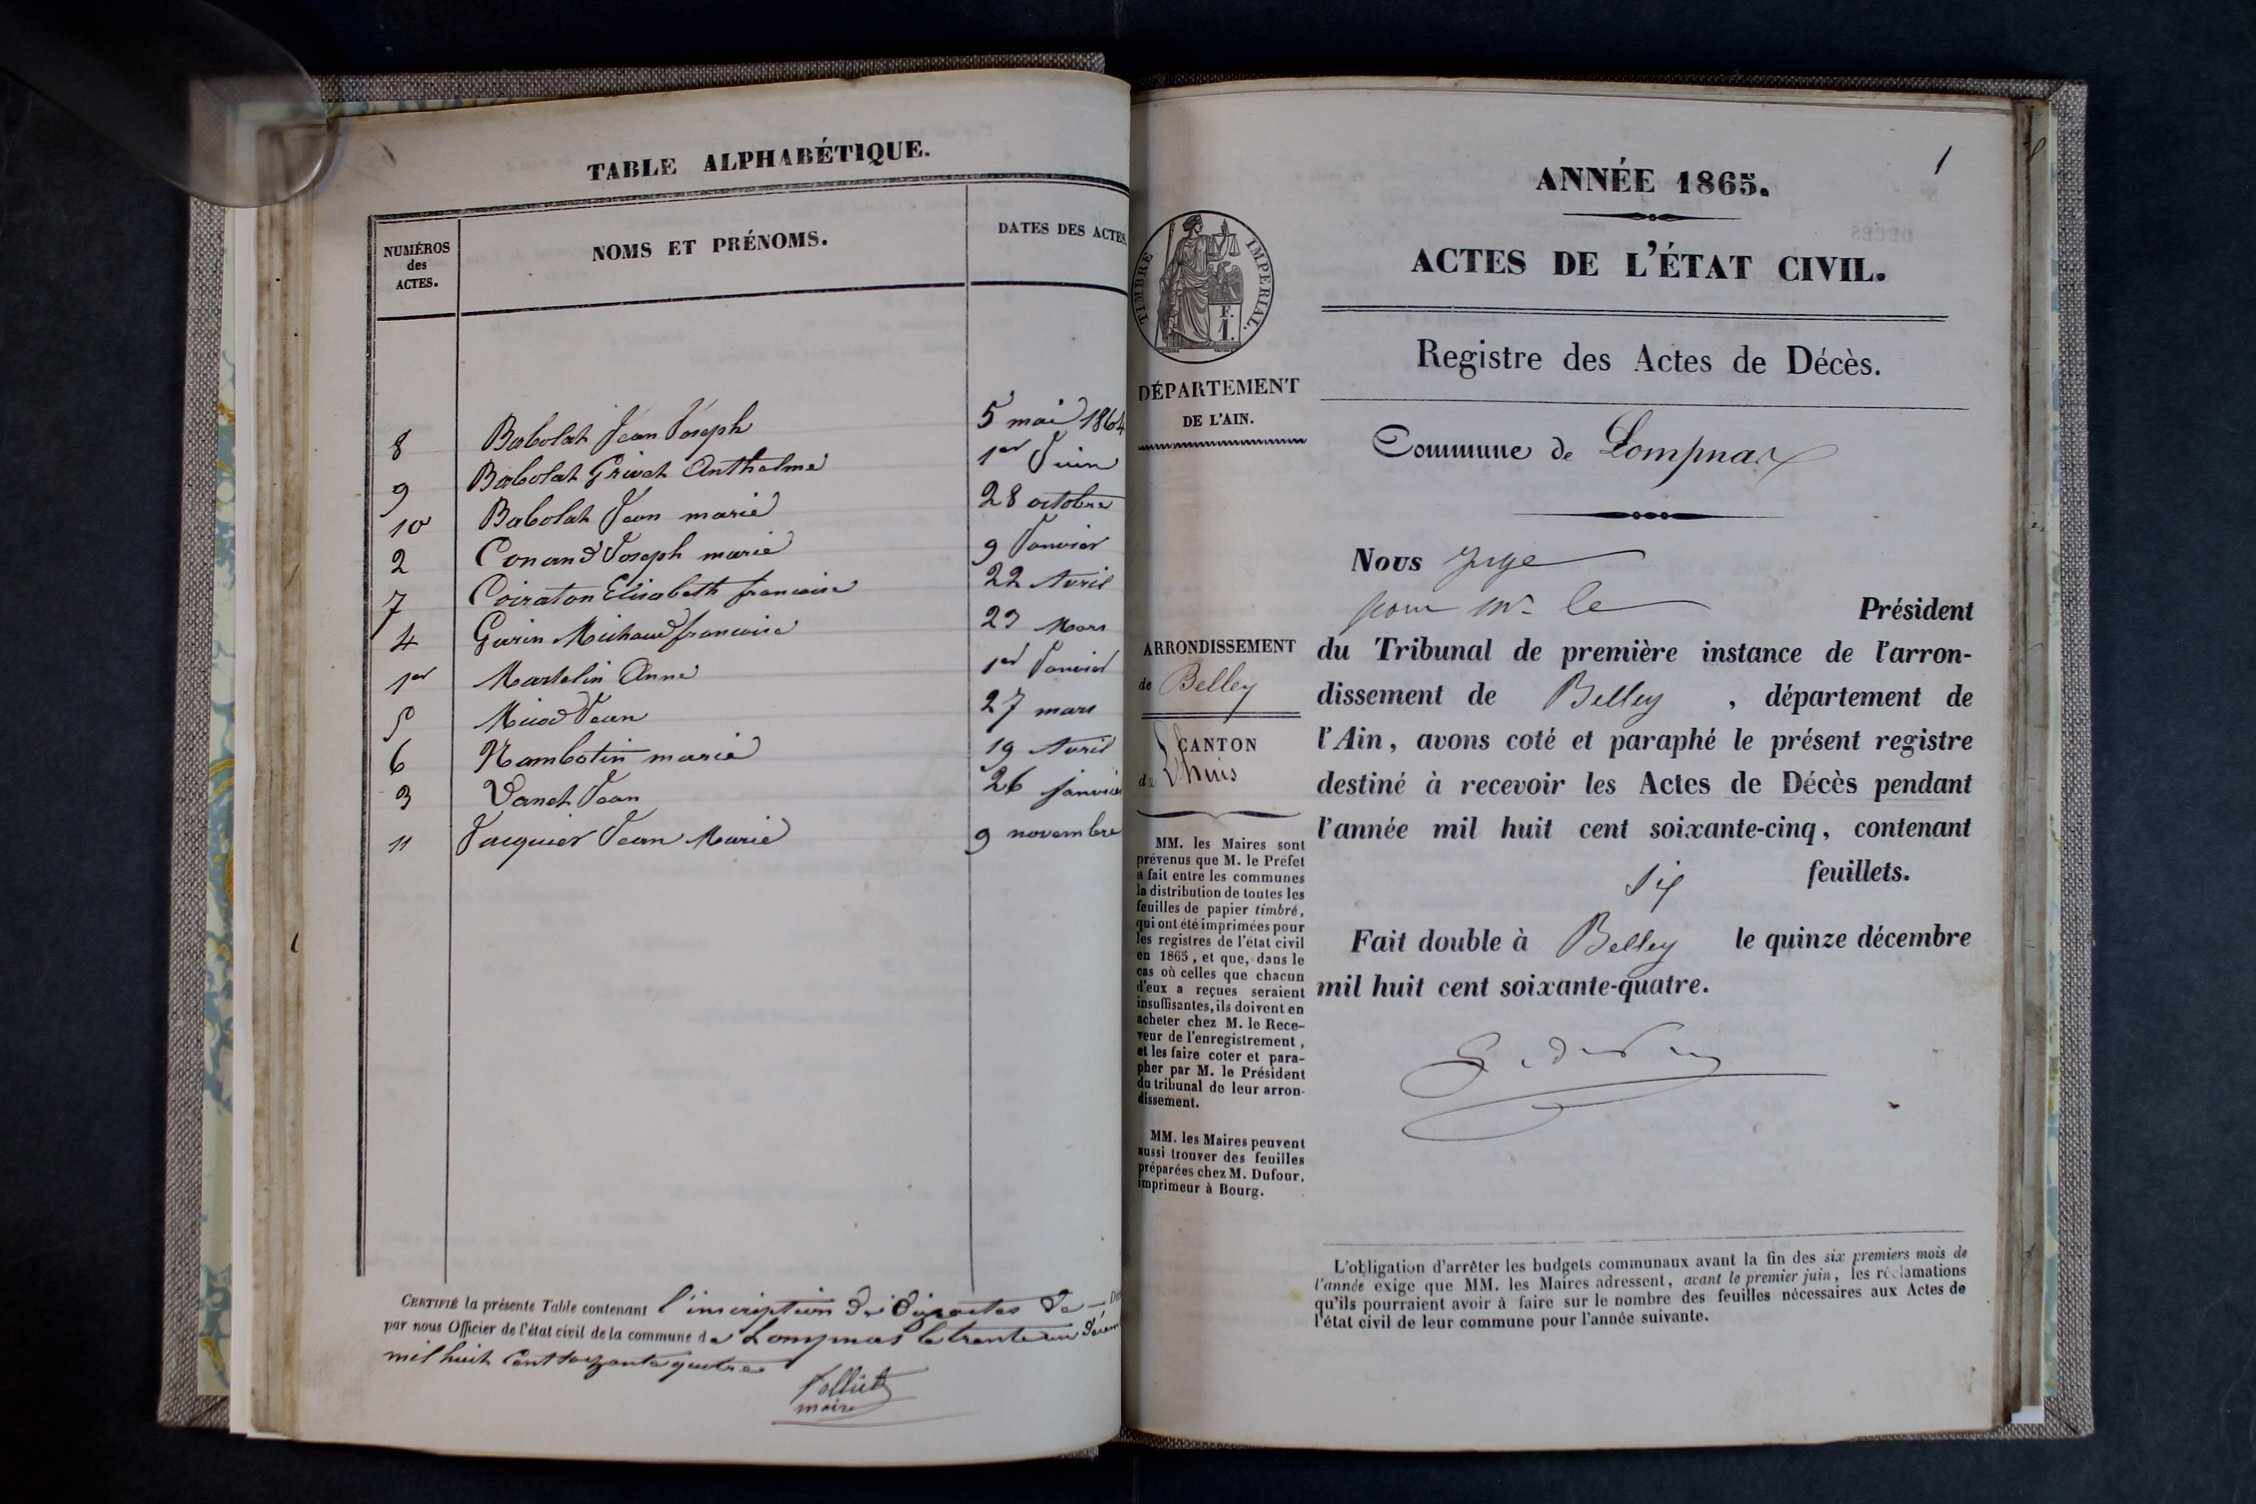 TABLE ALPHABÉTIQUE.
NUMÉROS
des
ACTES.
NOMS ET PRÉNOMS.
DATES DES ACTES.
8 Babolat Jean Joseph 5 mai 1864
9 Babolat Grivat Anthelme 1er Juin
10 Babolat Jean marie 28 octobre
2 Conand Joseph marie 9 Janvier
7 Coiraton Elisabeth francoise 22 Avril
4 Gurin Michaud francoise 23 Mars
1er Martelin Anne 1er Janvier
5 Jean 27 mars
6 marie 19 Avril
3 Jean 26 janvier
11 Jacquier Jean Marie 9 novembre
CERTIFIÉ la présente Table contenant l'inscription de actes de
par nous Officier de l'état civil de la commune de Lompnas le trente un
mil huit cent soixante quatre
maire
1
ANNÉE 1865.
ACTES DE L'ÉTAT CIVIL.
Registre des Actes de Décès.
Commune de Lompnax
TIMBRE IMPERIAL.
F.
1.
DÉPARTEMENT
DE L'AIN.
ARRONDISSEMENT
de Belley
CANTON
de Lhuis
MM. les Maires sont
prévenus que M. le Préfet
a fait entre les communes
la distribution de toutes les
feuilles de papier timbré,
qui ont été imprimées pour
les registres de l'état civil
en 1865, et que, dans le
cas où celles que chacun
d'eux a reçues seraient
insuffisantes, ils doivent en
acheter chez M. le Rece-
veur de l'enregistrement,
et les faire coter et para-
pher par M. le Président
du tribunal de leur arron-
dissement.
MM. les Maires peuvent
aussi trouver des feuilles
préparées chez M. Dufour,
imprimeur à Bourg.
Nous Juge
pour Mr le Président
du Tribunal de première instance de l'arron-
dissement de Belley, département de
l'Ain, avons coté et paraphé le présent registre
destiné à recevoir les Actes de Décès pendant
l'année mil huit cent soixante-cinq, contenant
six feuillets.
Fait double à Belley le quinze décembre
mil huit cent soixante-quatre.
L'obligation d'arrêter les budgets communaux avant la fin des six premiers mois de
l'année exige que MM. les Maires adressent, avant le premier juin, les réclamations
qu'ils pourraient avoir à faire sur le nombre des feuilles nécessaires aux Actes de
l'état civil de leur commune pour l'année suivante.